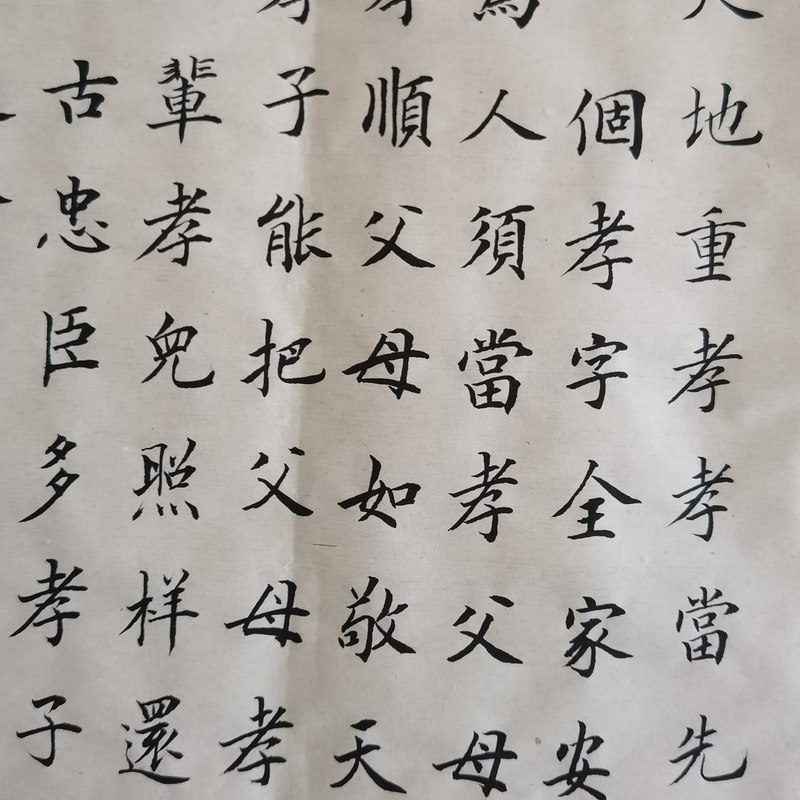 天地重孝孝當先
個孝字全家安
為人須當孝父母
孝順父母如敬天
孝子能把父母孝
輩孝兒照样還
古忠臣多孝子